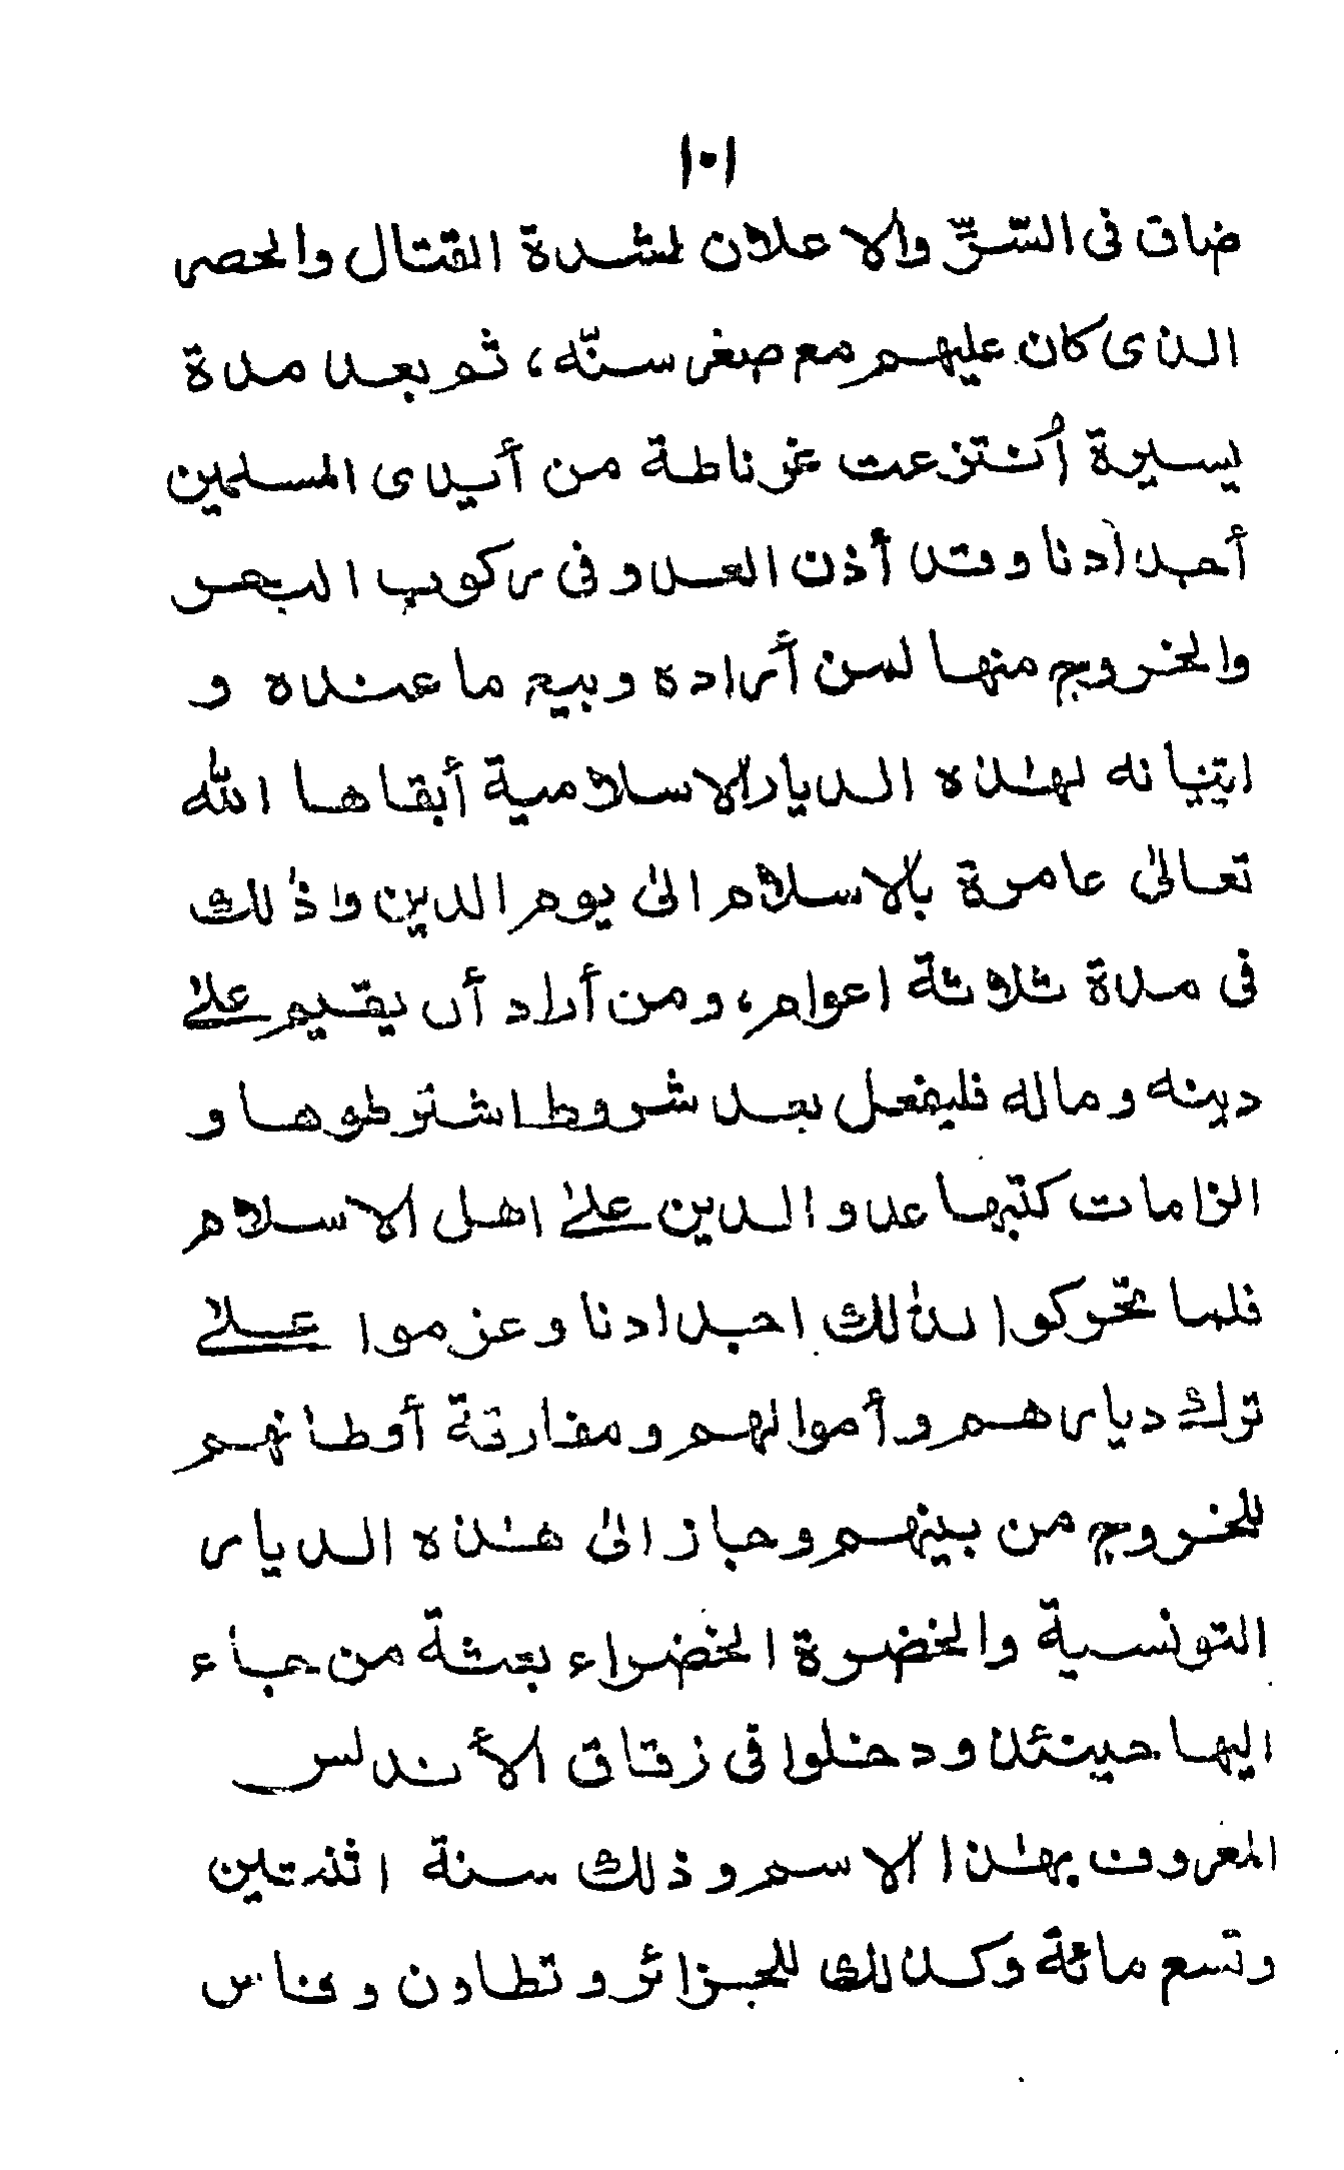 ١٠١
ضاق فى السّرِّ والاعلان لشدة القتال والحصر
الذى كان عليهم مع صغر سنّه، ثم بعد مدة
يسيرة أُنتزعت غرناطة من أيدى المسلمين
أجدادنا وقد أذن العدو فى ركوب البحر
والخروج منها لمن أراده وبيع ما عنده و
ايتيانه لهٰذه الديار الاسلامية أبقاها اللّٰه
تعالىٰ عامرة بالاسلام الىٰ يوم الدين واذٰلك
فى مدة ثلاثة اعوام، ومن أراد أن يقيم علىٰ
دينه وماله فليفعل بعد شروط اشترطوها و
الزامات كتبها عدو الدين علىٰ اهل الاسلام
فلما تحركوا لذٰلك اجدادنا وعزموا علىٰ
ترك ديارهم وأموالهم ومفارقة أوطانهم
للخروج من بينهم وجاز الىٰ هٰذه الديار
التونسية والخضرة الخضراء بعثة من جاء
اليها حينئذ ودخلوا فى زقاق الأندلس
المعروف بهٰذا الاسم وذلك سنة اثنتين
وتسع مائة وكذلك للجزائر وتطاون وفاس